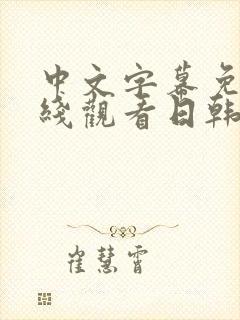 中文字幕免
綫觀看日韩
崔慧霄